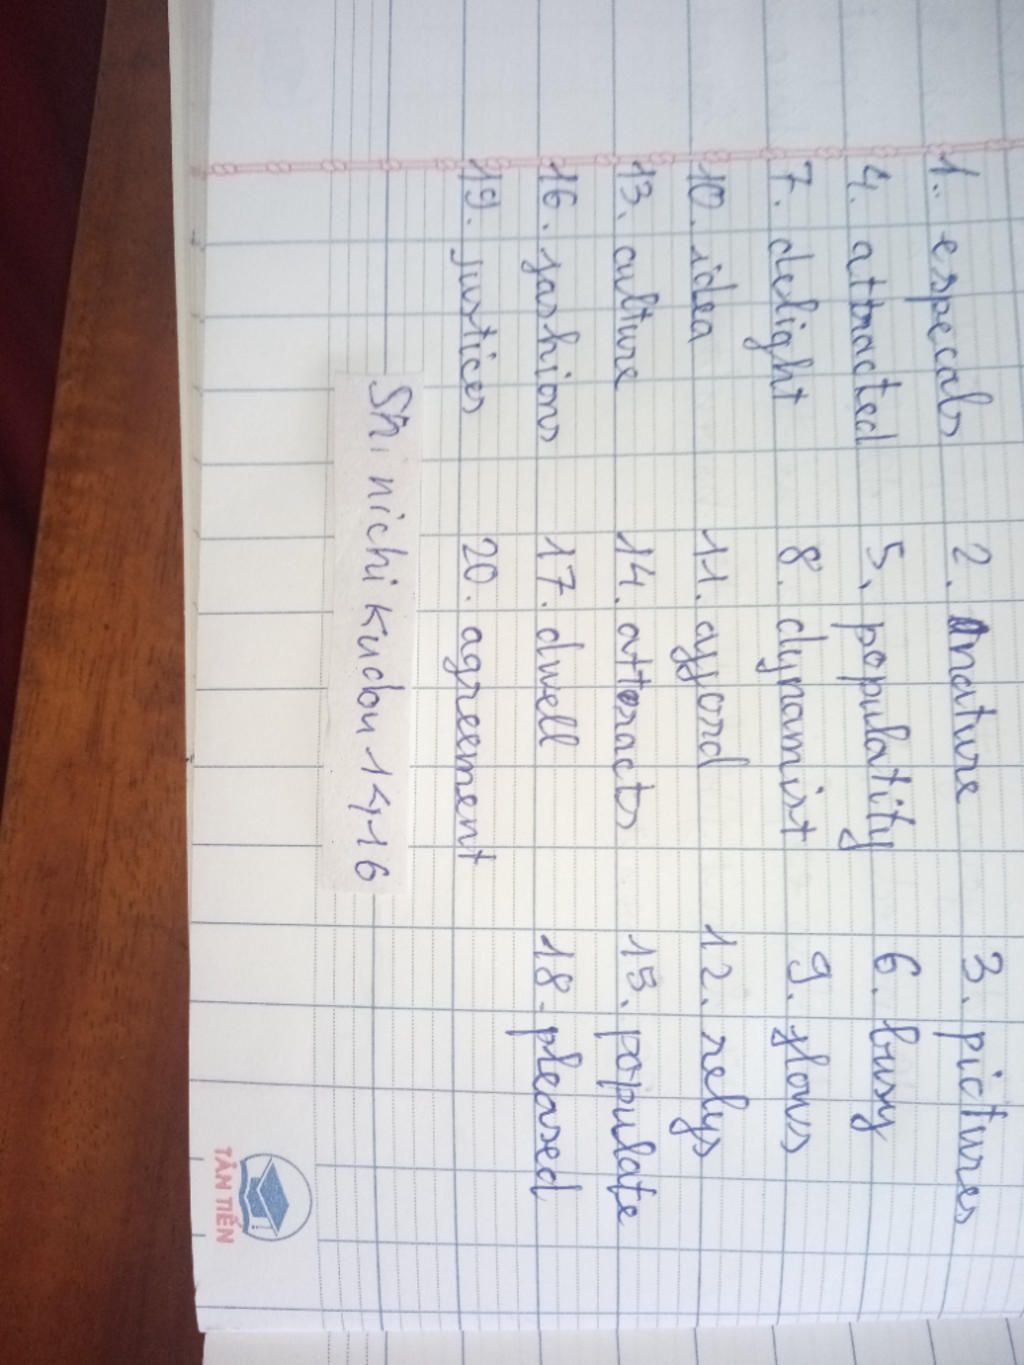 1. especals 2. nature 3. pictures
4. attracted 5. populatity 6. busy
7. delight 8. dynamist 9. flows
10. idea 11. afford 12. relys
13. culture 14. attracts 15. populate
16. fashions 17. dwell 18. pleased
19. justices 20. agreement
Shinichi Kudou 1416
TÂN TIẾN